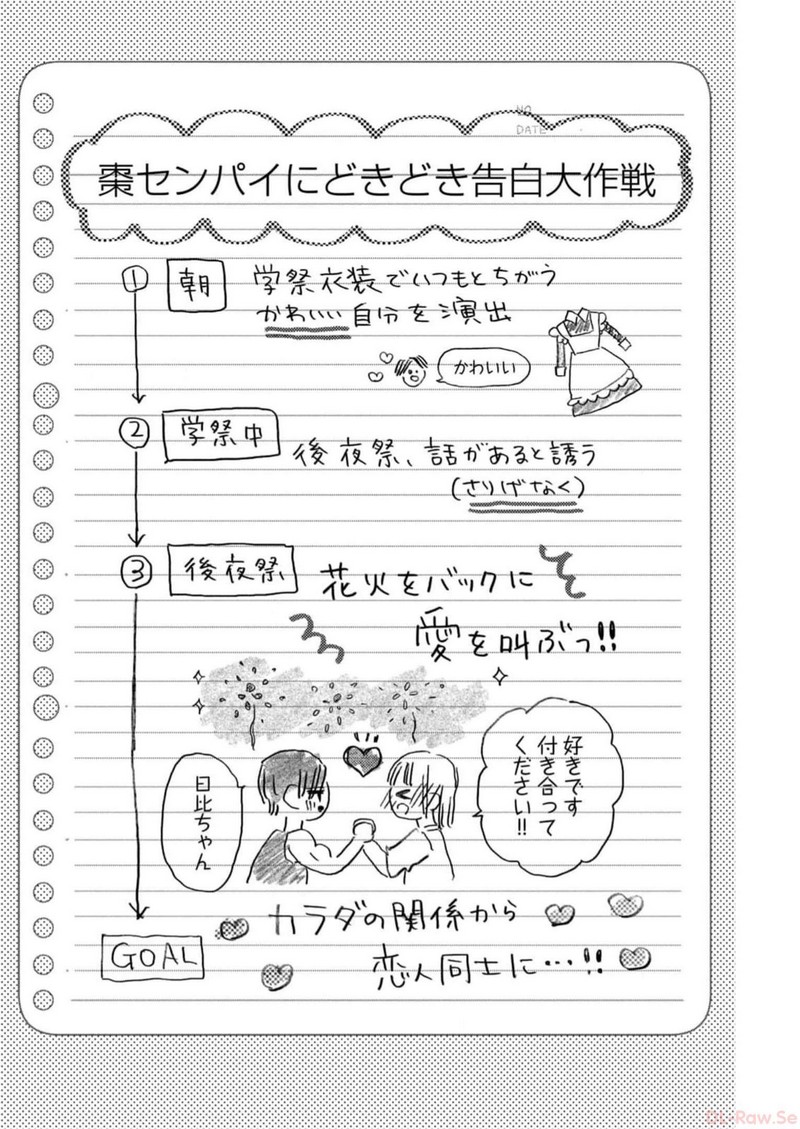 NO.
DATE
棗センパイにどきどき告白大作戦
① 朝
学祭衣装でいつもとちがう
かわいい自分を演出
かわいい
② 学祭中
後夜祭、話があると誘う
(さりげなく)
③ 後夜祭
花火をバックに
愛を叫ぶっ!!
好きです
付き合って
ください!!
日比ちゃん
カラダの関係から
恋人同士に…!!
GOAL
DL-Raw.Se